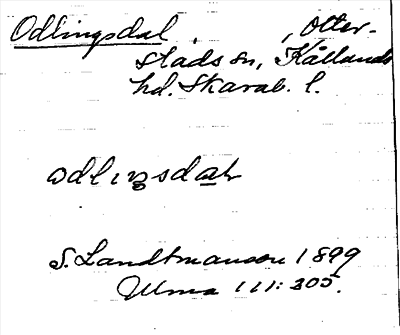 Odlingsdal, Otter-
stads sn, Kållands
hd. Skarab. l.
odlıŋsdal
S. Landtmanson 1899
Ulma 111:305.